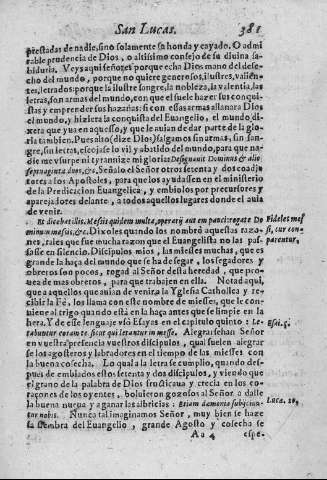 San Lucas. 381
prestadas de nadie, sino solamente sa honda y cayado. O admi
rable prudencia de Dios, o altissimo consejo de su divina sa-
biduria. Veys aqui señores porque echa Dios mano del dese-
cho del mundo, porque no quiere generosos, ilustres, valien-
tes, letrados: porque la ilustre sangre, la nobleza, la valentia, las
letras, son armas del mundo, con que el suele hazer sus conquis
tas y emprender sus hazañas: si con essas armas allanara Dios
el mundo, y hiziera la conquista del Evangelio, el mundo di-
xera que yua en aquesso, y que le auian de dar parte de la glo-
ria tambien. Pues alto (dize Dios) salgamos sin armas, sin san-
gre, sin letras, escojase lo vil y abatido del mundo, para que na-
die me vsurpe ni tyrannize mi gloria: Designauit Dominus & alios
septuaginta duos, &c. Señalo el Señor otros setenta y dos coadju
tores a los Apostoles, para que los ayudassen en el ministerio
de la Predicacion Euangelica, y embiolos por precursores y
aparejadores delante, a todos aquellos lugares donde el auia
de venir.
Et dicebat illis. Messis quidem multa, operarij aut em pauci: rogate Do
minum messis, &c. Dixoles quando los nombrò aquestas razo-
nes, tales que fue mucha razon que el Euangelista no las pas-
sasse en silencio. Discipulos mios, las miesses muchas, que es
grande la haça del mundo que se ha de segar, los segadores y
obreros son pocos, rogad al Señor desta heredad, que pro-
uea de mas obreros, para que trabajen en ella. Notad aqui,
que a aquellos que auian de venir a la Yglesia Catholica y re-
cibir la Fè, los llama con este nombre de miesses, que le con-
uiene al trigo quando està en la haça antes que se limpie en la
hera. Y de esse lenguaje vsò Esayas en el capitulo quinto: Le-
tabuntur coram te, sicut qui letantur in messe. Alegrarsehan Señor
en vuestra presencia vuestros discipulos, qual suelen alegrar
se los agosteros y labradores en el tiempo de las miesses con
la buena cosecha. Lo qual a la letra se cumplio, quando des-
pues de embiados estos setenta y dos discipulos, y viendo que
el grano de la palabra de Dios fructicaua y crecia en los co-
raçones de los oyentes, boluieron gozosos al Señor a dalle
la buena nueua y a ganar las albricias: Etiam dæmonia subijciun-
tur nobis. Nunca tal imaginamos Señor, muy bien se haze
la siembra del Euangelio, grande Agosto y cosecha se
Aa 4 espe-
Fideles mes
si, cur com
parentur,
Esai. 9.
Luca. 10,